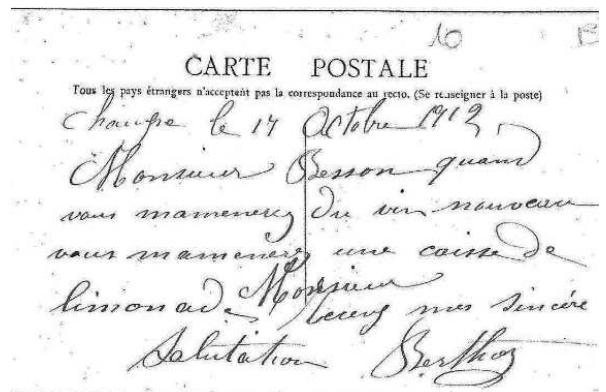 10
CARTE POSTALE
Tous les pays étrangers n'acceptent pas la correspondance au recto. (Se renseigner à la poste)
le 14 Octobre 1912
Monsieur Besson quand
vous mamenerez du vin nouveau
vous mamenerez une caisse de
limonade Monsieur
recevez mes sincère
Salutation Berthoz